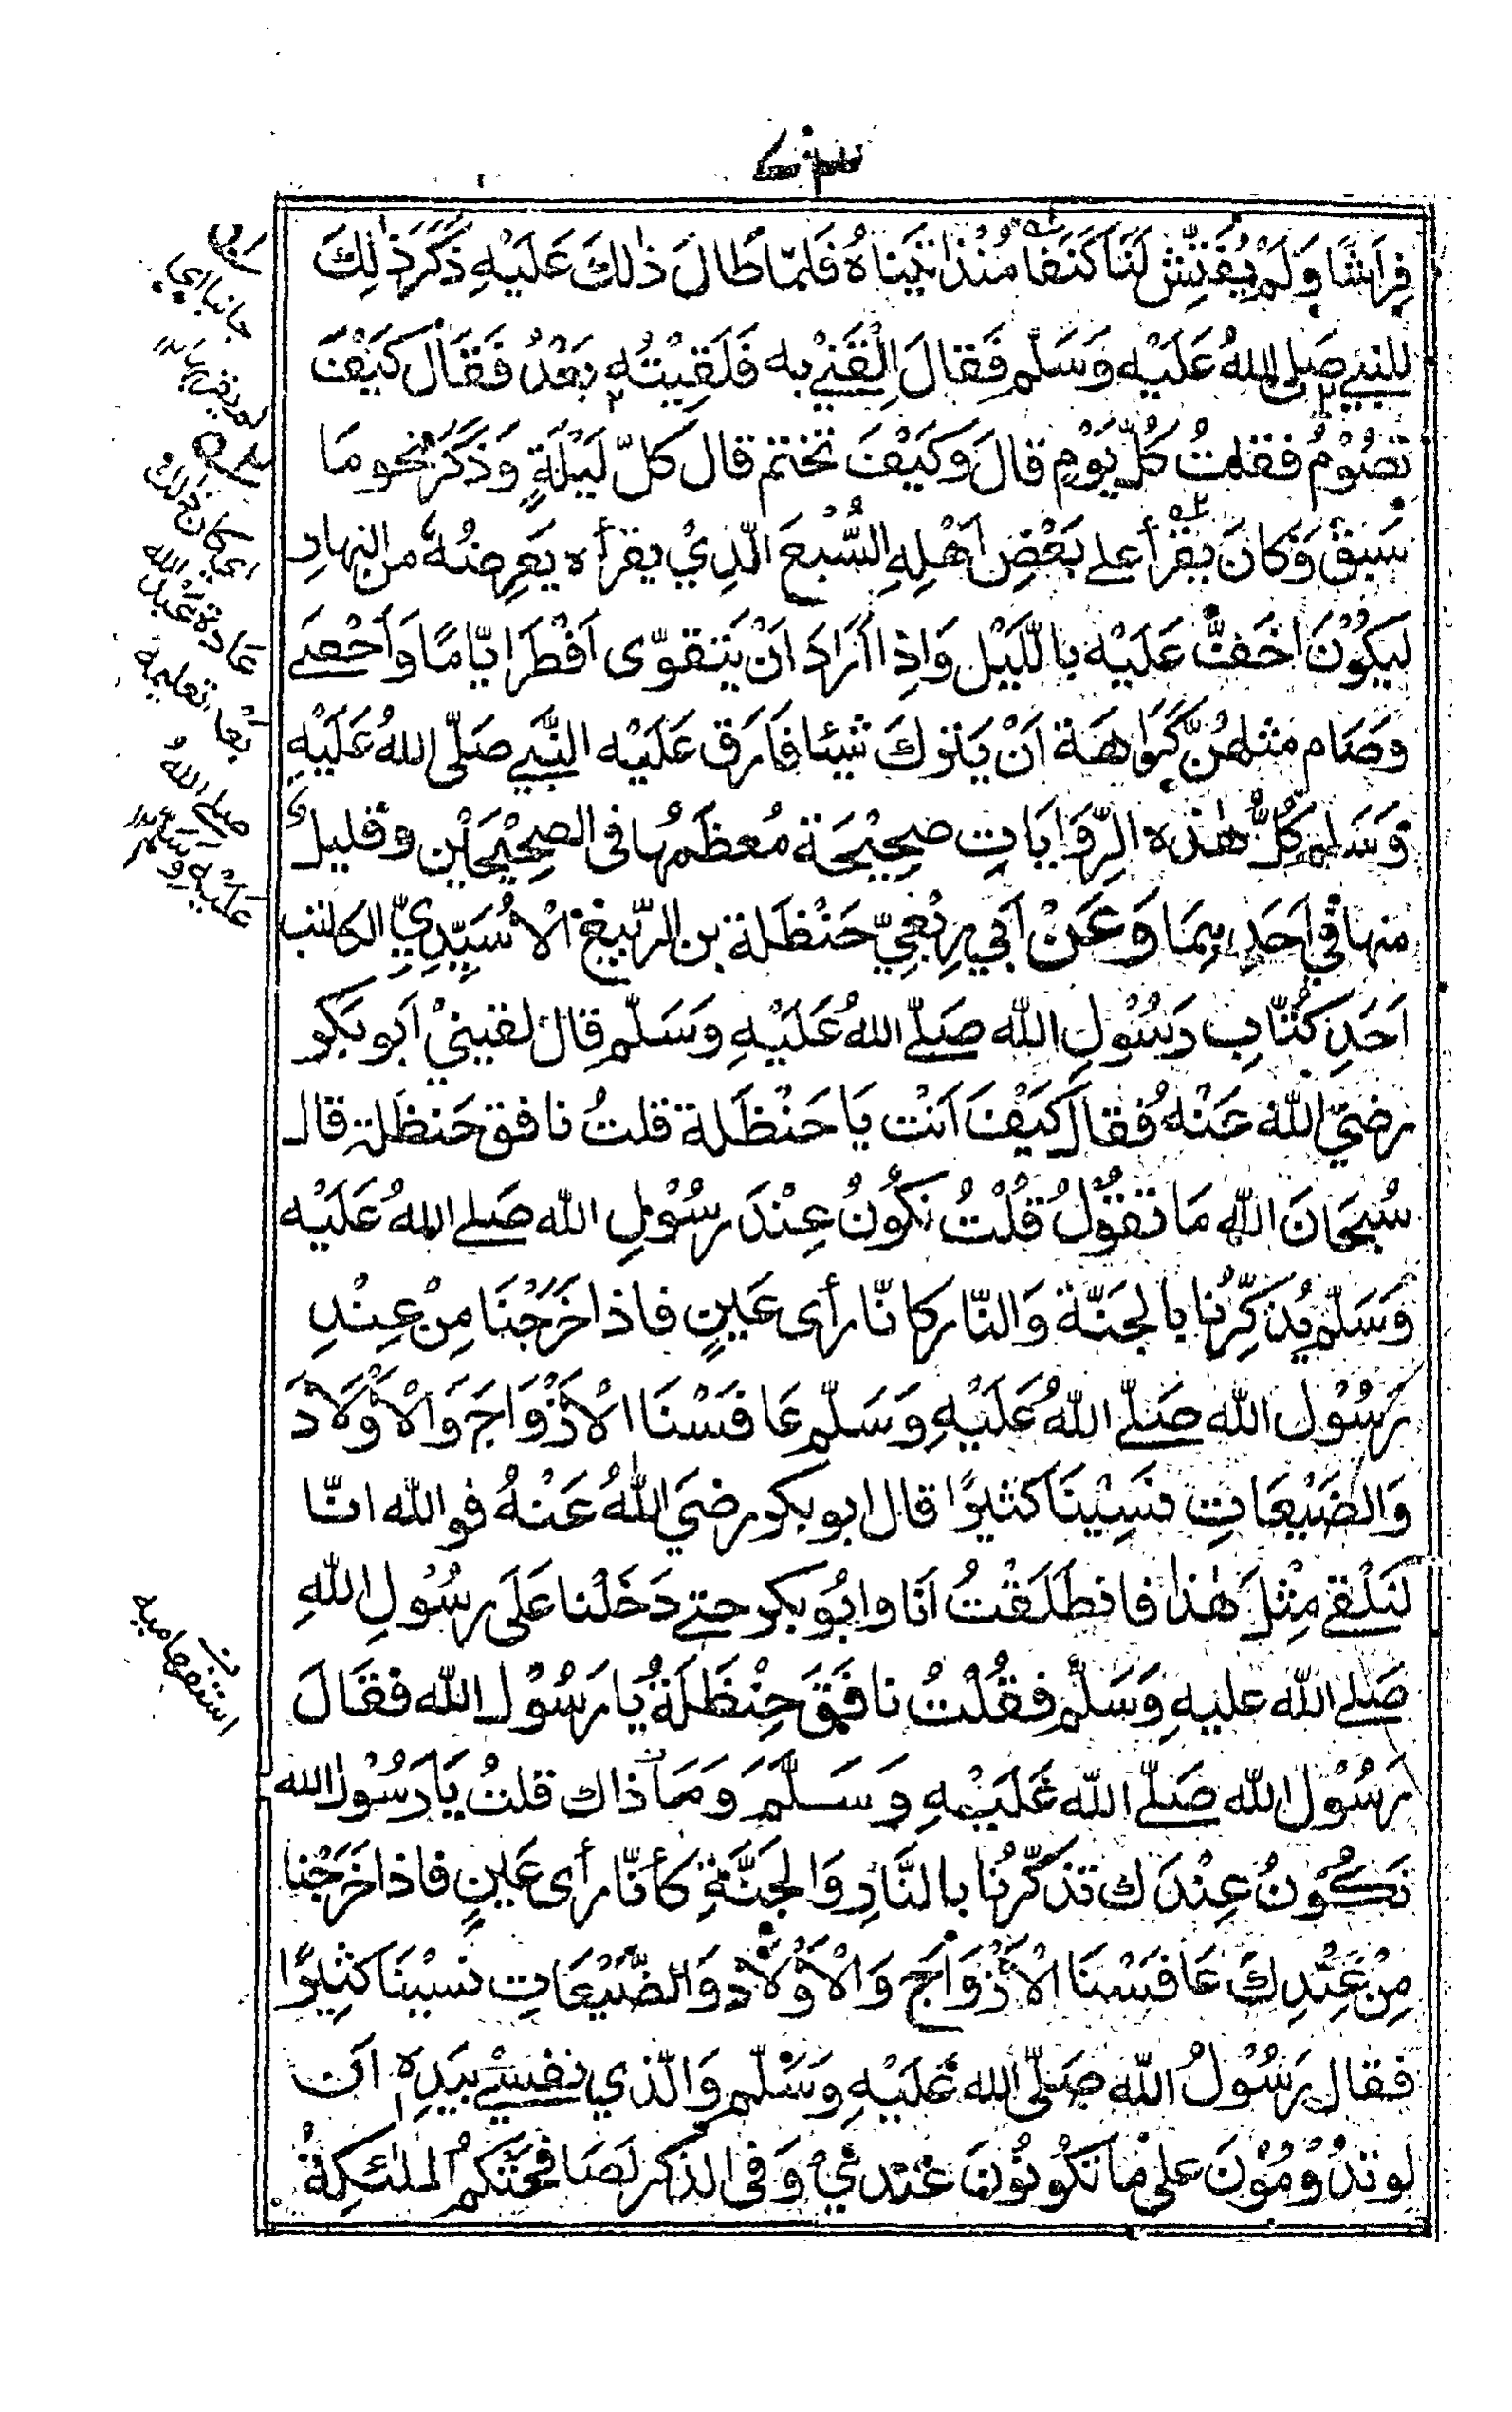 فِرَاشًا وَلَمْ يُفَتِّش لَنَا كَنَفًا مُنْذُ اَتَيْنَاهُ فَلَمّا طَالَ ذٰلكَ عَلَيْهِ ذَكَرَ ذٰلِكَ
للنبيے صَلى اللهُ عَلَيْه وَسَلّم فَقالَ اِلْقَنِيْ به فَلَقِيْتُه بَعْدُ فَقَالَ كَيْفَ
تَصُوْمُ فقلتُ كُلَّ يَوْمٍ قالَ وَكَيْفَ تختم قال كلّ لَيْلَةٍ وَذَكَرَ نحو مَا
سَبَقَ وَكانَ يقْرَأ علے بَعْضِ اَهْلِهِ السُّبعَ الّذِيْ يقرأه يَعرِضُهُ من النهارِ
ليَكُوْنَ اَخَفَّ عَلَيْه باللّيْل وَاِذا اَرَادَ اَنْ يَتقوّى اَفْطَرَ ايّامًا وَاَحْصَے
وصَام مثلهُنَّ كَرَاهَة اَنْ يَتركَ شيئا فارَق عَلَيْه النَّبيے صَلّى اللهُ عَلَيْهِ
وَسَلم كُلُّ هٰذه الرِّوَايَاتِ صحِيْحَة مُعظَمُها فى الصحِيْحَيْن وقليلٌ
منها في اَحَدِهِمَا وَعَنْ اَبي رِبْعِيّ حَنْظَلة بن الرّبيع الْاُسَيِّدِيِّ الكاتب
اَحَدِ كُتّابِ رَسُوْلِ الله صَلّے اللهُ عَلَيْهِ وَسَلّم قالَ لقيَنيْ اَبو بَكر
رضيَ اللهُ عَنْهُ فَقالَ كَيْفَ اَنْت يَا حَنْظَلة قلتُ نافق حَنظَلة قالَ
سُبحَانَ الله مَا تقُوْلُ قُلْتُ نَكُوْنُ عِنْدَ رسُوْلِ الله صَلے اللهُ عَلَيْه
وَسَلّم يُذَكِّرُنا بالجنَّة وَالنّار كانّا رأى عَيْنٍ فاذا خَرَجْنَا مِنْ عِنْدِ
رَسُوْل الله صَلّے اللهُ عَلَيْهِ وَسَلّم عَافَسْنَا الْاَزْوَاجَ وَالْاَوْلَادَ
وَالضَيْعَاتِ نَسِيْنَا كثيرًا قال ابو بكر رضيَ اللهُ عَنْهُ فوالله انّا
لَنَلْقےٰ مِثْلَ هٰذا فانطَلَقْتُ اَنا وابُو بكر حتے دَخَلْنا عَلَى رسُوْلِ اللهِ
صَلے الله عليهِ وَسَلّم فقُلْتُ نافَقَ حنْظَلَةُ يا رَسُوْل الله فقَالَ
رَسُوْل الله صَلّے الله عَلَيْهِ وَسَلَّمَ وَمَا ذاك قلتُ يَا رَسُوْلَ الله
نَكُوْنُ عِنْدَك تذكّرُنا بالنَّارِ وَالجنَّةِ كأنّا رأى عَينٍ فاذا خَرَجْنا
مِنْ عِنْدِكَ عَافَسْنَا الْاَزْوَاجَ وَالْاَوْلَادَ وَالضَّيْعَاتِ نسينَا كثِيرًا
فقال رَسُوْلُ الله صَلّى الله عَلَيْهِ وَسَلّم وَالّذي نفسْے بيَدِهٖ اَن
لو تدُوْمُوْنَ على ما تكُوْنُوْنَ عنْدِيْ وَفى الذكر لصَافحَتْكُم الملٰئكةُ
جانبا اى
لم يقرب
اى كان ذلك
عادة عبد الله
بعد تعليمه
صلے اللهُ
عَلَيْه وَسَلّم
استفهامية